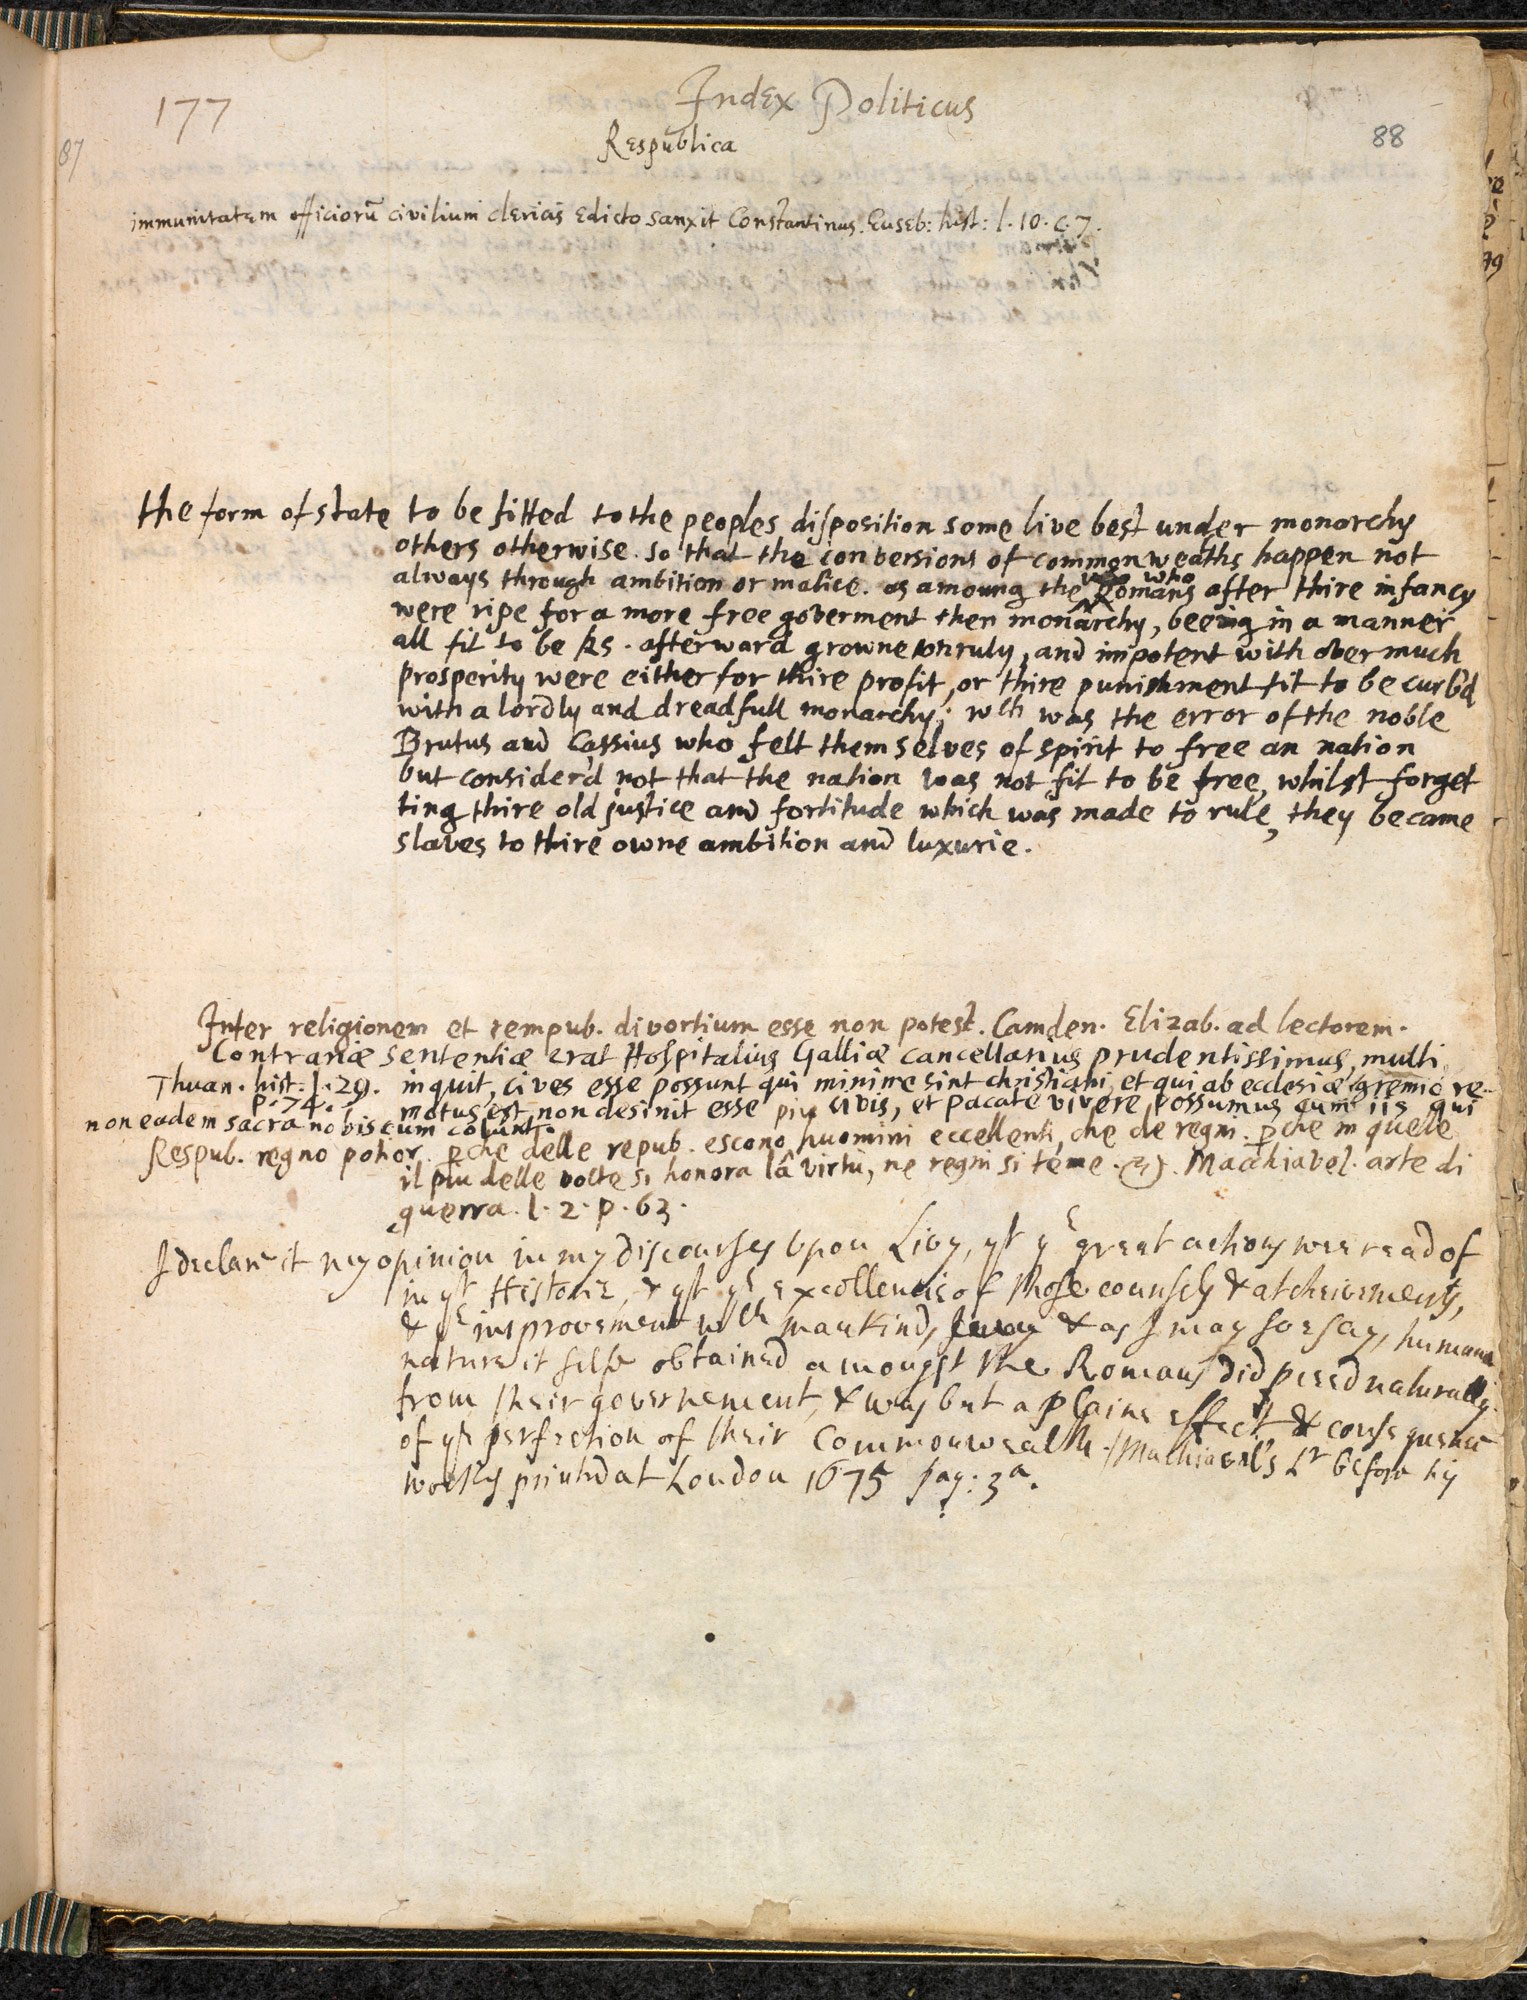 177
Index Politicus
Respublica
88
87
immunitatem officiorū civilium clericis edicto sanxit Constantinus. Euseb: hist: l. 10. c. 7.
the form of state to be fitted to the peoples disposition some live best under monarchy
others otherwise. so that the conversions of commonweaths happen not
always through ambition or malice. as amoung the Romans who after thire infancy
were ripe for a more free goverment then monarchy, beeing in a manner
all fit to be Ks. afterward growne unruly, and impotent with overmuch
prosperity were either for thire profit, or thire punishment fit to be curb'd
with a lordly and dreadfull monarchy; wch was the error of the noble
Brutus and Cassius who felt themselves of spirit to free an nation
but consider'd not that the nation was not fit to be free, whilst forget
ting thire old justice and fortitude which was made to rule, they became
slaves to thire owne ambition and luxurie.
Inter religionem et rempub. divortium esse non potest. Camden. Elizab. ad lectorem.
Contrariæ sententiæ erat Hospitalius Galliæ cancellarius prudentissimus, multi
Thuan. hist. l. 29. inquit, cives esse possunt qui minime sint christiani, et qui ab ecclesiæ gremio re-
p. 74. motus est, non desinit esse civis, et pacate vivere possumus cum iis qui
non eadem sacra nobiscum colunt.
Respub. regno potior. p̱che delle repub. escono huomini eccellenti, che de regni. p̱che in quelle
il piu delle volte si honora la virtù, ne regni si teme. &c. Macchiavel. arte di
guerra. l. 2. p. 63.
I declare it my opinion in my discourses vpon Livy, yt ye great actions wee read of
in yt Historie, & yt ye excellencie of those counsels & atcheivements,
& ye improvement wch mankind, & as I may soe say, humane
nature it selfe obtained amongst the Romans did proceed naturally
from their governement, & was but a plaine effect, & consequence
of ye perfection of their Commonwealth. Machiavel's Lr before his
works printed at London 1675 pag: 3a.